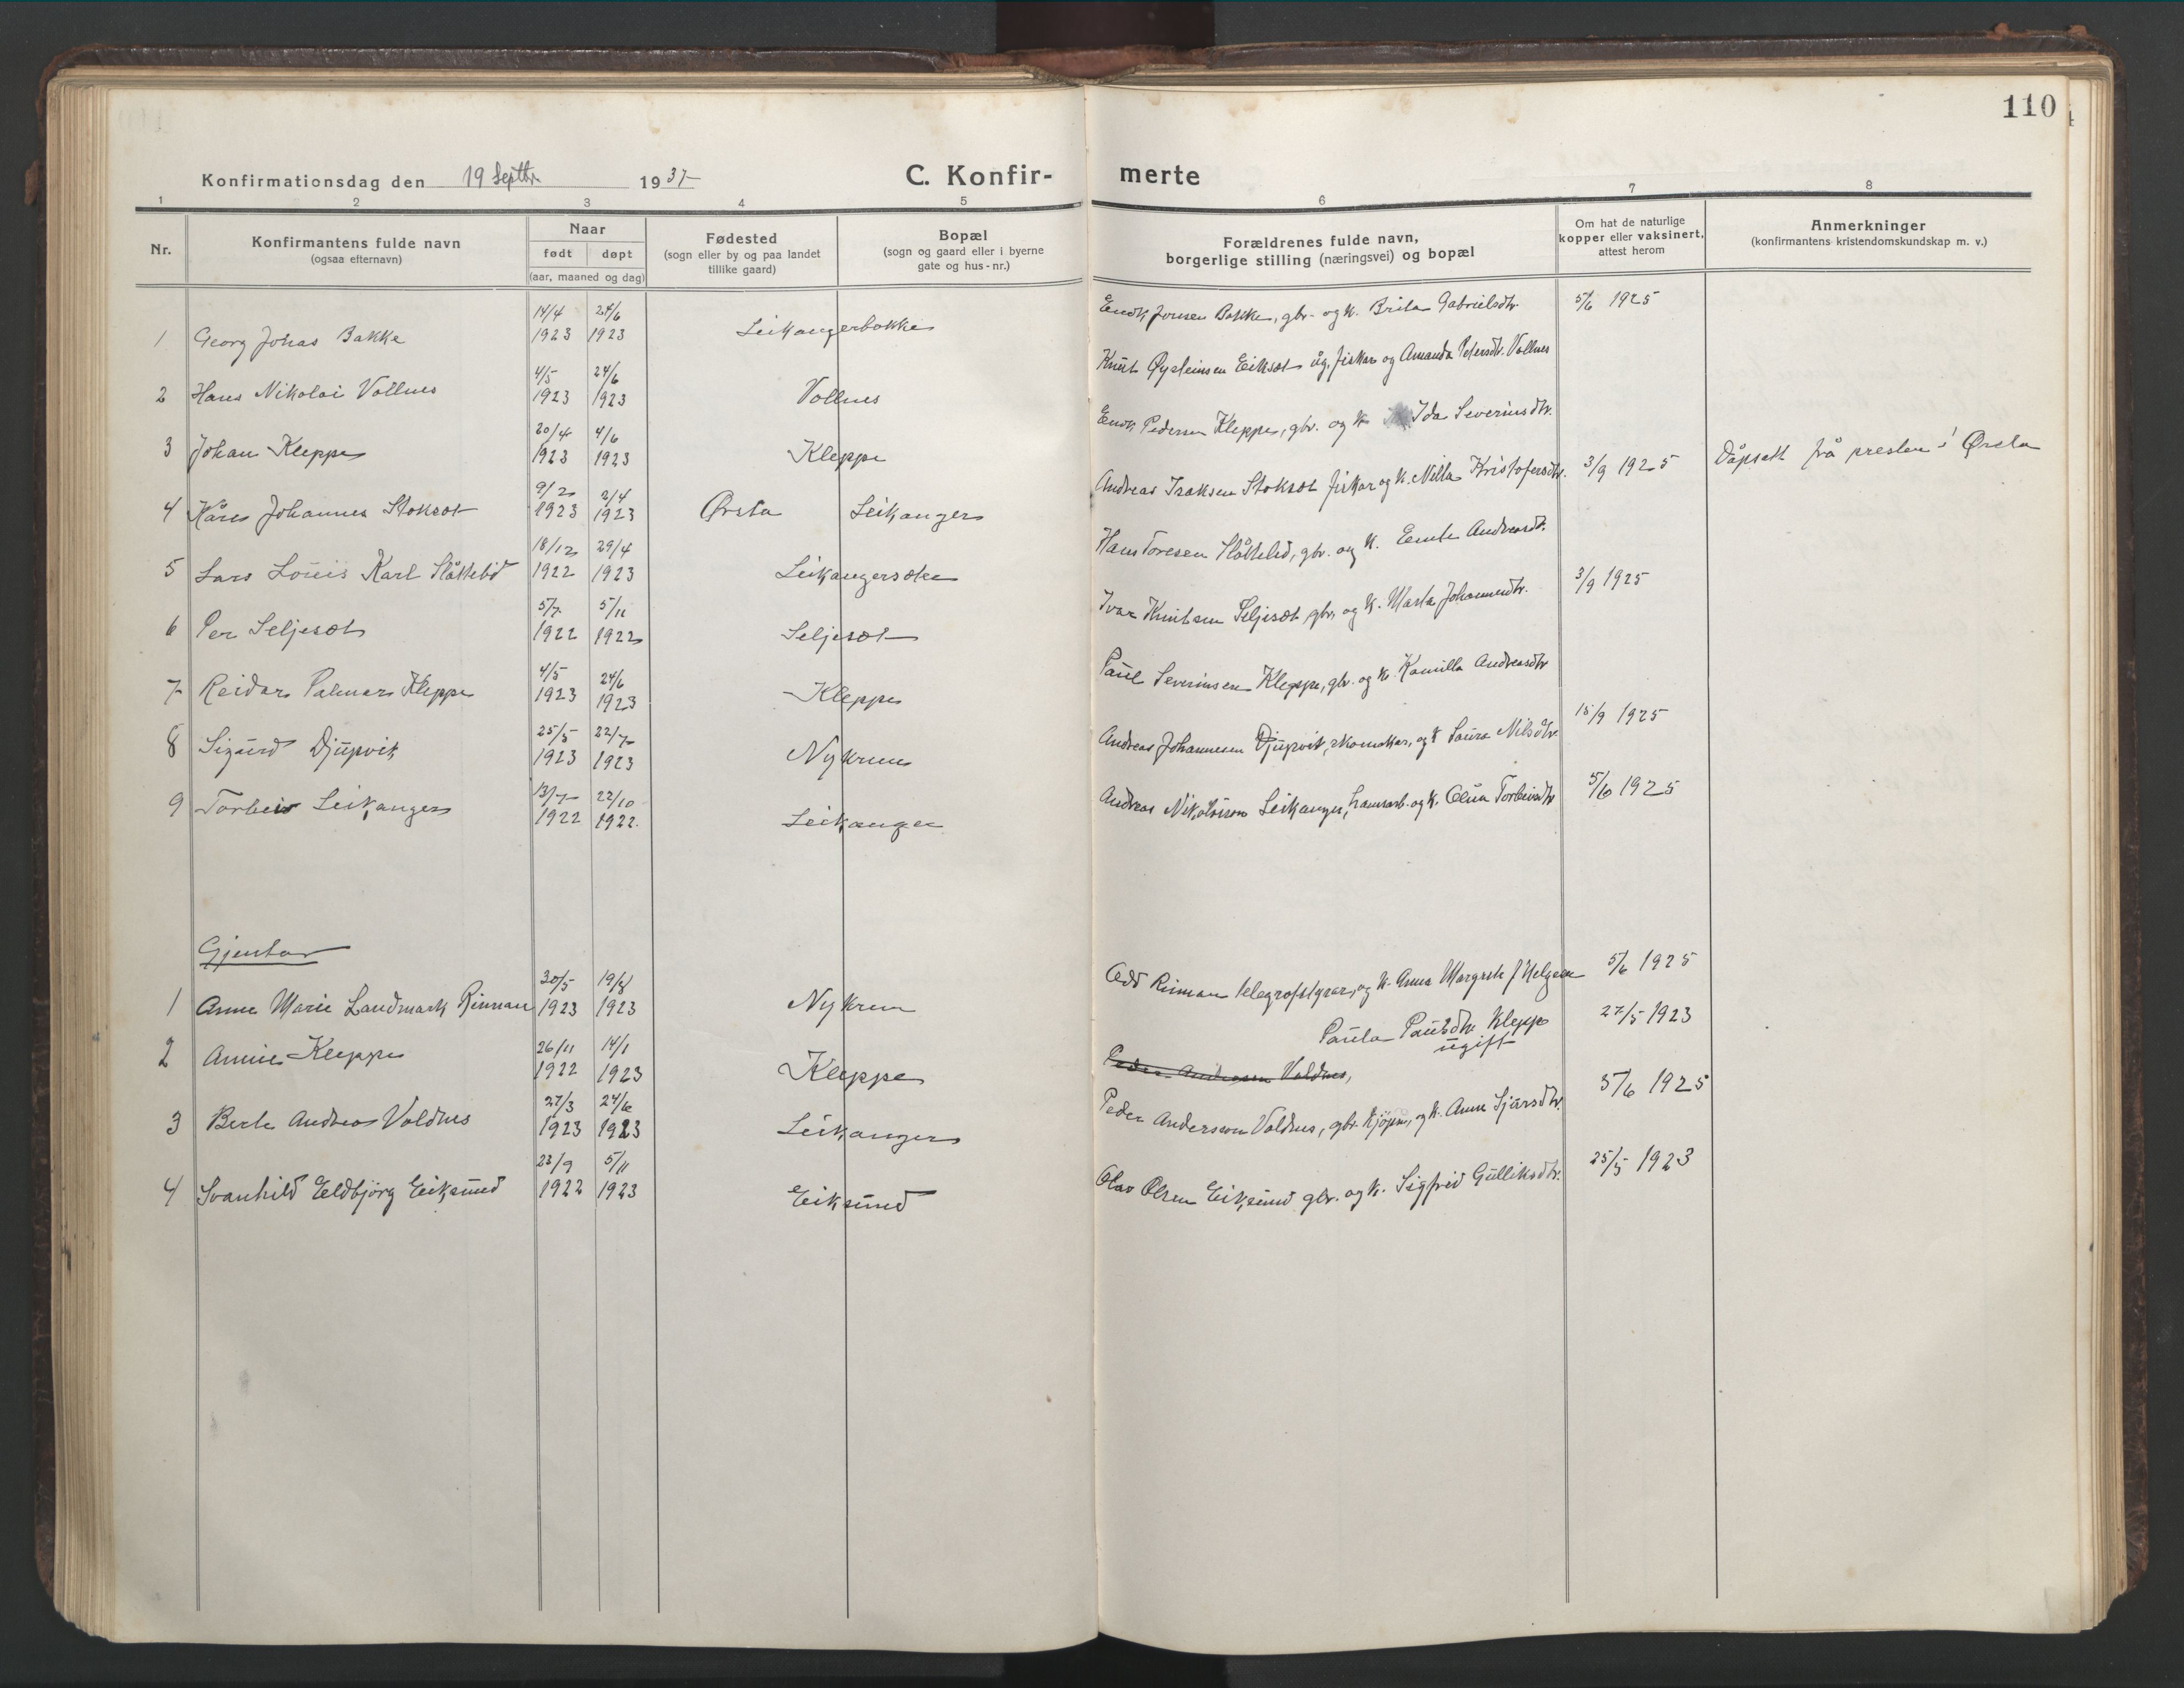 110
Konfirmationsdag den 19 Septbr 1937
C. Konfir-
merte
1 2 3 4 5 6 7 8
Nr.
Konfirmantens fulde navn
(ogsaa efternavn)
Naar
født døpt
(aar, maaned og dag)
Fødested
(sogn eller by og paa landet
tillike gaard)
Bopæl
(sogn og gaard eller i byerne
gate og hus-nr.)
Forældrenes fulde navn,
borgerlige stilling (næringsvei) og bopæl
Om hat de naturlige
kopper eller vaksinert,
attest herom
Anmerkninger
(konfirmantens kristendomskundskap m. v.)
1 Georg Johas Bakke 14/4 1923 24/6 1923 Leikangerbakke Enok Jonsen Bakke, gbr. og k. Brita Gabrielsdtr. 5/6 1925
2 Hans Nikolai Vollnes 4/5 1923 24/6 1923 Vollnes Knut Øysteinsen Eikset ug. fiskar og Amanda Petersdtr. Vollnes
3 Johan Kleppe 20/4 1923 4/6 1923 Kleppe Enok Pedersen Kleppe, gbr. og k. Ida Severinsdtr.
4 Kåre Johannes Stokset 9/2 1923 2/4 1923 Ørsta Leikanger Andreas Isaksen Stokset fiskar og k. Nilla Kristofersdtr. 3/9 1925 Dåpsatt frå presten i Ørsta
5 Lars Louis Karl Slåttelid 18/12 1922 29/4 1923 Leikangersætre Hans Toresen Slåttelid, gbr. og k. Ernte Andreasdtr.
6 Per Seljeset 5/7 1922 5/11 1922 Seljeset Ivar Knutsen Seljeset, gbr. og k. Marta Johannesdtr. 3/9 1925
7 Reidar Palmer Kleppe 4/5 1923 24/6 1923 Kleppe Paul Severinsen Kleppe, gbr. og k. Kamilla Andreasdtr
8 Sigurd Djupvik 25/5 1923 22/7 1923 Nykrem Andreas Johannesen Djupvik, skomakar, og k Laura Nilsdtr 15/9 1925
9 Torbeir Leikanger 13/7 1922 22/10 1922. Leikanger Andreas Nikolaisen Leikanger, og k. Olua Torbeirsdtr 5/6 1925
Gjentor
1 Anne Marie Landmark Rinnan 30/5 1923 19/8 1923 Nykrem Odd Rinnan telegrafstyrar, og k. Anna Margrete J Helgesen 5/6 1925
2 Annie Kleppe 26/11 1922 14/1 1923 Kleppe Paula Paulsdtr Kleppe 27/5 1923
ugift
Peder Andersen Voldnes,
3 Berte Andrea Voldnes 27/3 1923 24/6 1923 Leikanger Peder Anderssen Voldnes, gbr. kjøpm., og k. Anne Sjursdtr. 5/6 1925
4 Svanhild Eldbjörg Eiksund 23/9 1922 5/11 1923 Eiksund Olav Olsen Eiksund gbr. og k. Sigfrid Gulliksdtr. 25/5 1923